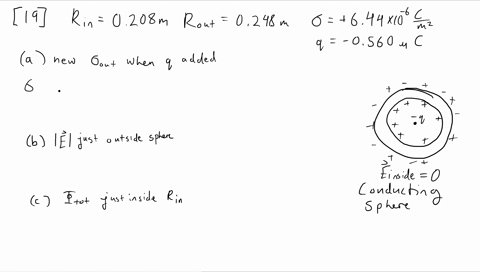 [19] Rin = 0.208m Rout = 0.248m σ = +6.44x10^-6 C/m²
q = -0.560 μC
(a) new σout when q added
σ
(b) |E⃗| just outside sphere
(c) Φtot just inside Rin
-q
E⃗inside = 0
Conducting
Sphere